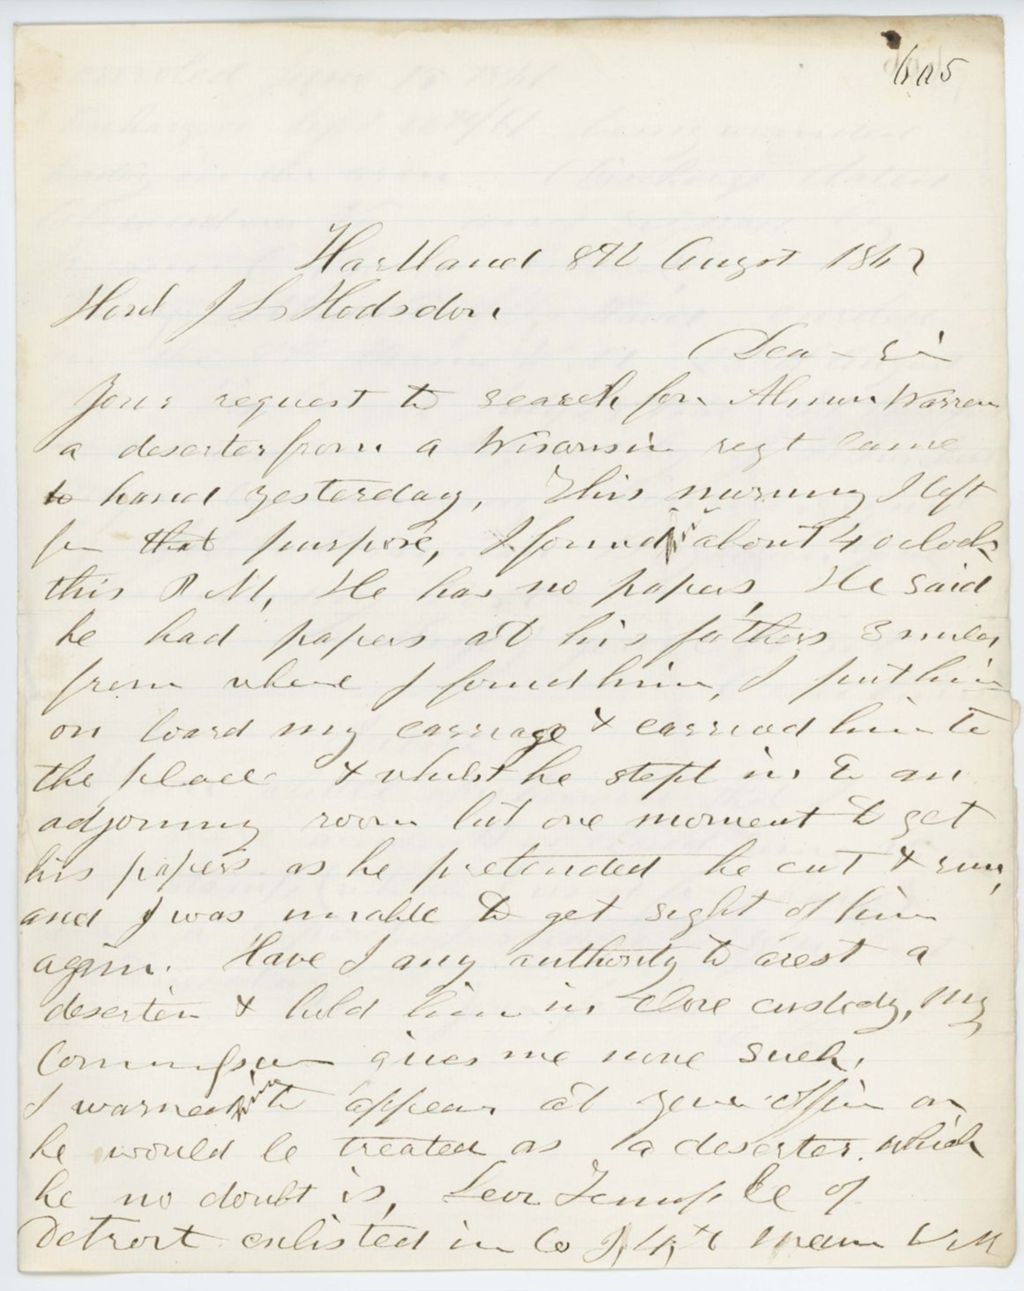 605
Hartland 8th August 1862
Honl J L Hodsdon
Dear Sir
Your request to search for Almon Warren
a deserter from a Wisconsin regt came
to hand yesterday, This morning I left
for that purpose, I found him about 4 oclock
this P M, He has no papers, He said
he had papers at his fathers 3 miles
from where I found him, I put him
on board my carriage & carried him to
the place & whilst he stept in to an
adjoining room but one moment to get
his papers as he pretended he cut & run,
and I was unable to get sight of him
again. Have I any authority to arest a
deserter & hold him in close custody, My
Commission gives me none such,
I warned him to appear at your office or
he would be treated as a deserter, which
he no doubt is, Levi Temple of
Detroit enlisted in Co 4th Maine